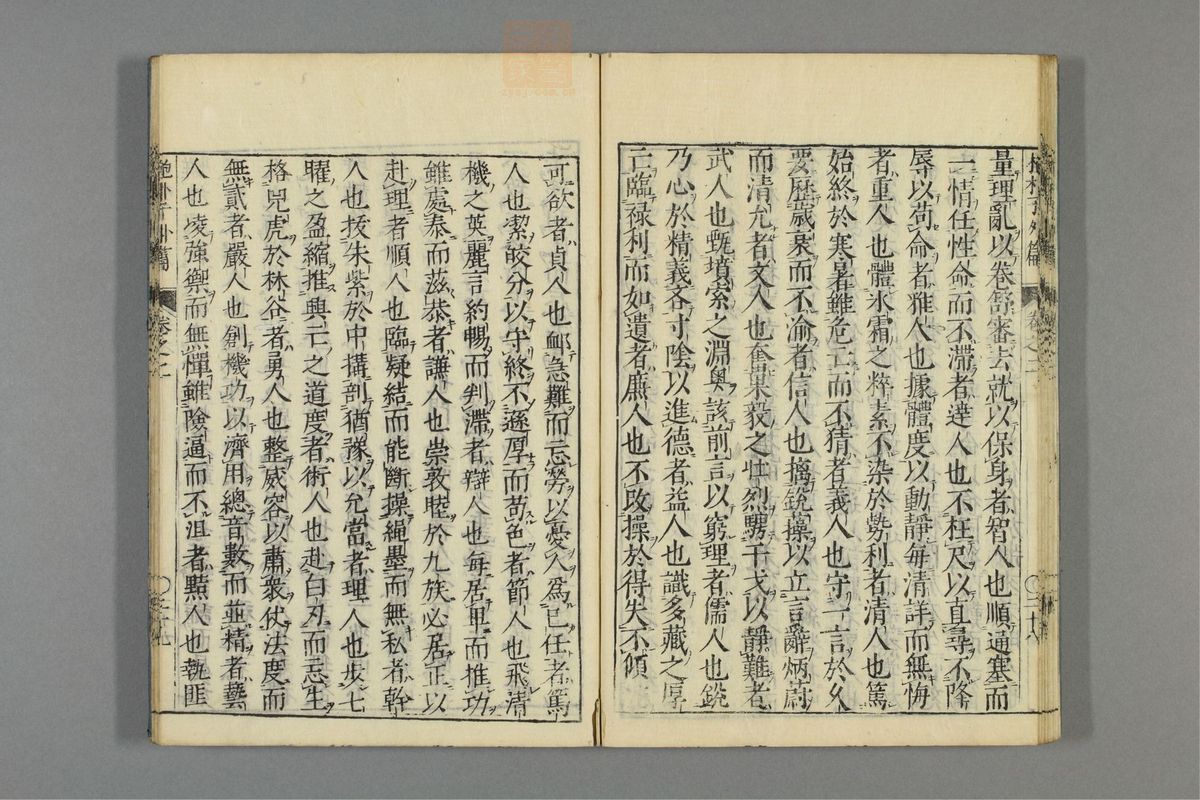 量理亂以卷舒審去就以保身者智人也順通塞而
一情任性命而不滯者達人也不枉尺以直尋不降
辱以苟命者雅人也據體度以動靜每清詳而無悔
者重人也體氷霜之粹素不染於勢利者清人也篤
始終於寒暑雖危亡而不猜者義人也守一言於久
要歷歲衰而不渝者信人也摛銳藻以立言辭炳蔚
而清允者文人也奮果毅之壯烈騁干戈以靜難者
武人也甄墳索之淵奧該前言以窮理者儒人也銳
乃心於精義吝寸陰以進德者益人也識多藏之厚
亡臨祿利而如遺者廉人也不改操於得失不傾
可欲者貞人也邮急難而忘勞以憂人爲己任者篤
人也潔皎分以守終不遜厚而苟色者節人也飛清
機之英麗言約暢而判滯者辯人也每居卑而推功
雖處泰而滋恭者謙人也崇敦睦於九族必居正以
赴理者順人也臨疑結而能斷操繩墨而無私者幹
人也拔朱紫於中搆剖猶豫以允當者理人也步七
曜之盈縮推興亡之道度者術人也赴白刃而忘生
格兕虎於林谷者勇人也整威容以肅衆仗法度而
無貳者嚴人也創機功以濟用總音數而並精者藝
人也凌強禦而無憚雖險逼而不沮者黠人也執匪
抱朴子外篇 卷之二